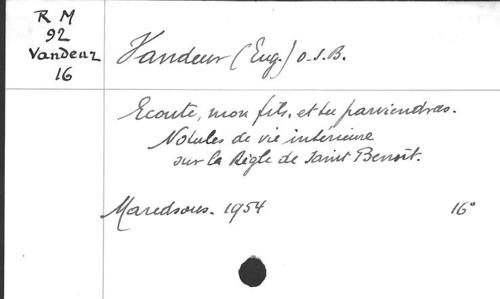 R M
92
Vandeur
16
Vandeur (Eug.) O.S.B.
Ecoute, mon fils, et tu parviendras.
Notules de vie intérieure
sur la Règle de Saint Benoît.
Maredsous. 1954 16°